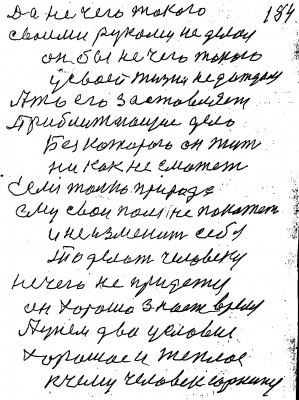 184
Да не чего такого
своими руками не делал
он бы не чего такого
у своей жизни не дождал
Ать его заставляет
Приближающие дело
Без которого он жит
ни как не сможет
Если только природа
ему свои поля не покажет
и не изменит себя
То делат человеку
нечего не придету
он хорошо знает время
Путем два условие
хорошае и теплое
к чему человек